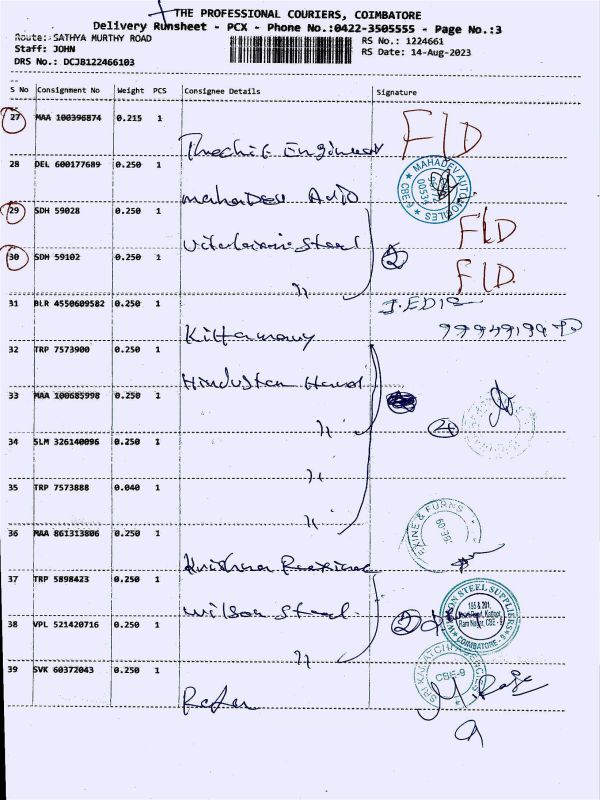 THE PROFESSIONAL COURIERS, COIMBATORE
Delivery Runsheet - PCX - Phone No.:0422-3505555 - Page No.:3
Route: SATHYA MURTHY ROAD
RS No.: 1224661
Staff: JOHN
RS Date: 14-Aug-2023
DRS No.: DCJB122466103
S No Consignment No Weight PCS Consignee Details Signature
27 MAA 100396874 0.215 1
FLD
Engineer
28 DEL 600177689 0.250 1
MahaDev Auto
MAHADEV AUTOMOBILES
CBE-9
29 SDH 59028 0.250 1
Steel
FLD
30 SDH 59102 0.250 1
2
FLD
31 BLR 4550609582 0.250 1
J.EDIS
32 TRP 7573900 0.250 1
Hindustan
33 MAA 100685998 0.250 1
4
34 SLM 326140096 0.250 1
35 TRP 7573888 0.040 1
36 MAA 861313806 0.250 1
& FURNS
Krishna
37 TRP 5898423 0.250 1
Wilson Steel
2
STEEL SUPPLIERS
Ram Nagar, CBE - 9
COIMBATORE - 9
38 VPL 521420716 0.250 1
39 SVK 60372043 0.250 1
CBE-9